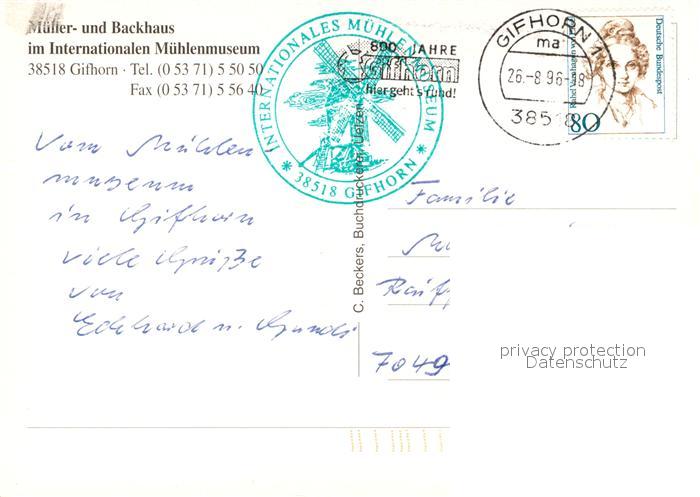 Müller- und Backhaus
im Internationalen Mühlenmuseum
38518 Gifhorn · Tel. (0 53 71) 5 50 50
Fax (0 53 71) 5 56 40
INTERNATIONALES MÜHLENMUSEUM
* 38518 GIFHORN *
800 JAHRE
Gifhorn
hier geht's rund!
GIFHORN 1
ma
26.-8.96-18
38518
Deutsche Bundespost
80
Vom Mühlen
museum
in Gifhorn
viele Grüße
von
Eckhard u. Gundi
C. Beckers, Buchdruckerei, Uelzen
Familie
7049
privacy protection
Datenschutz